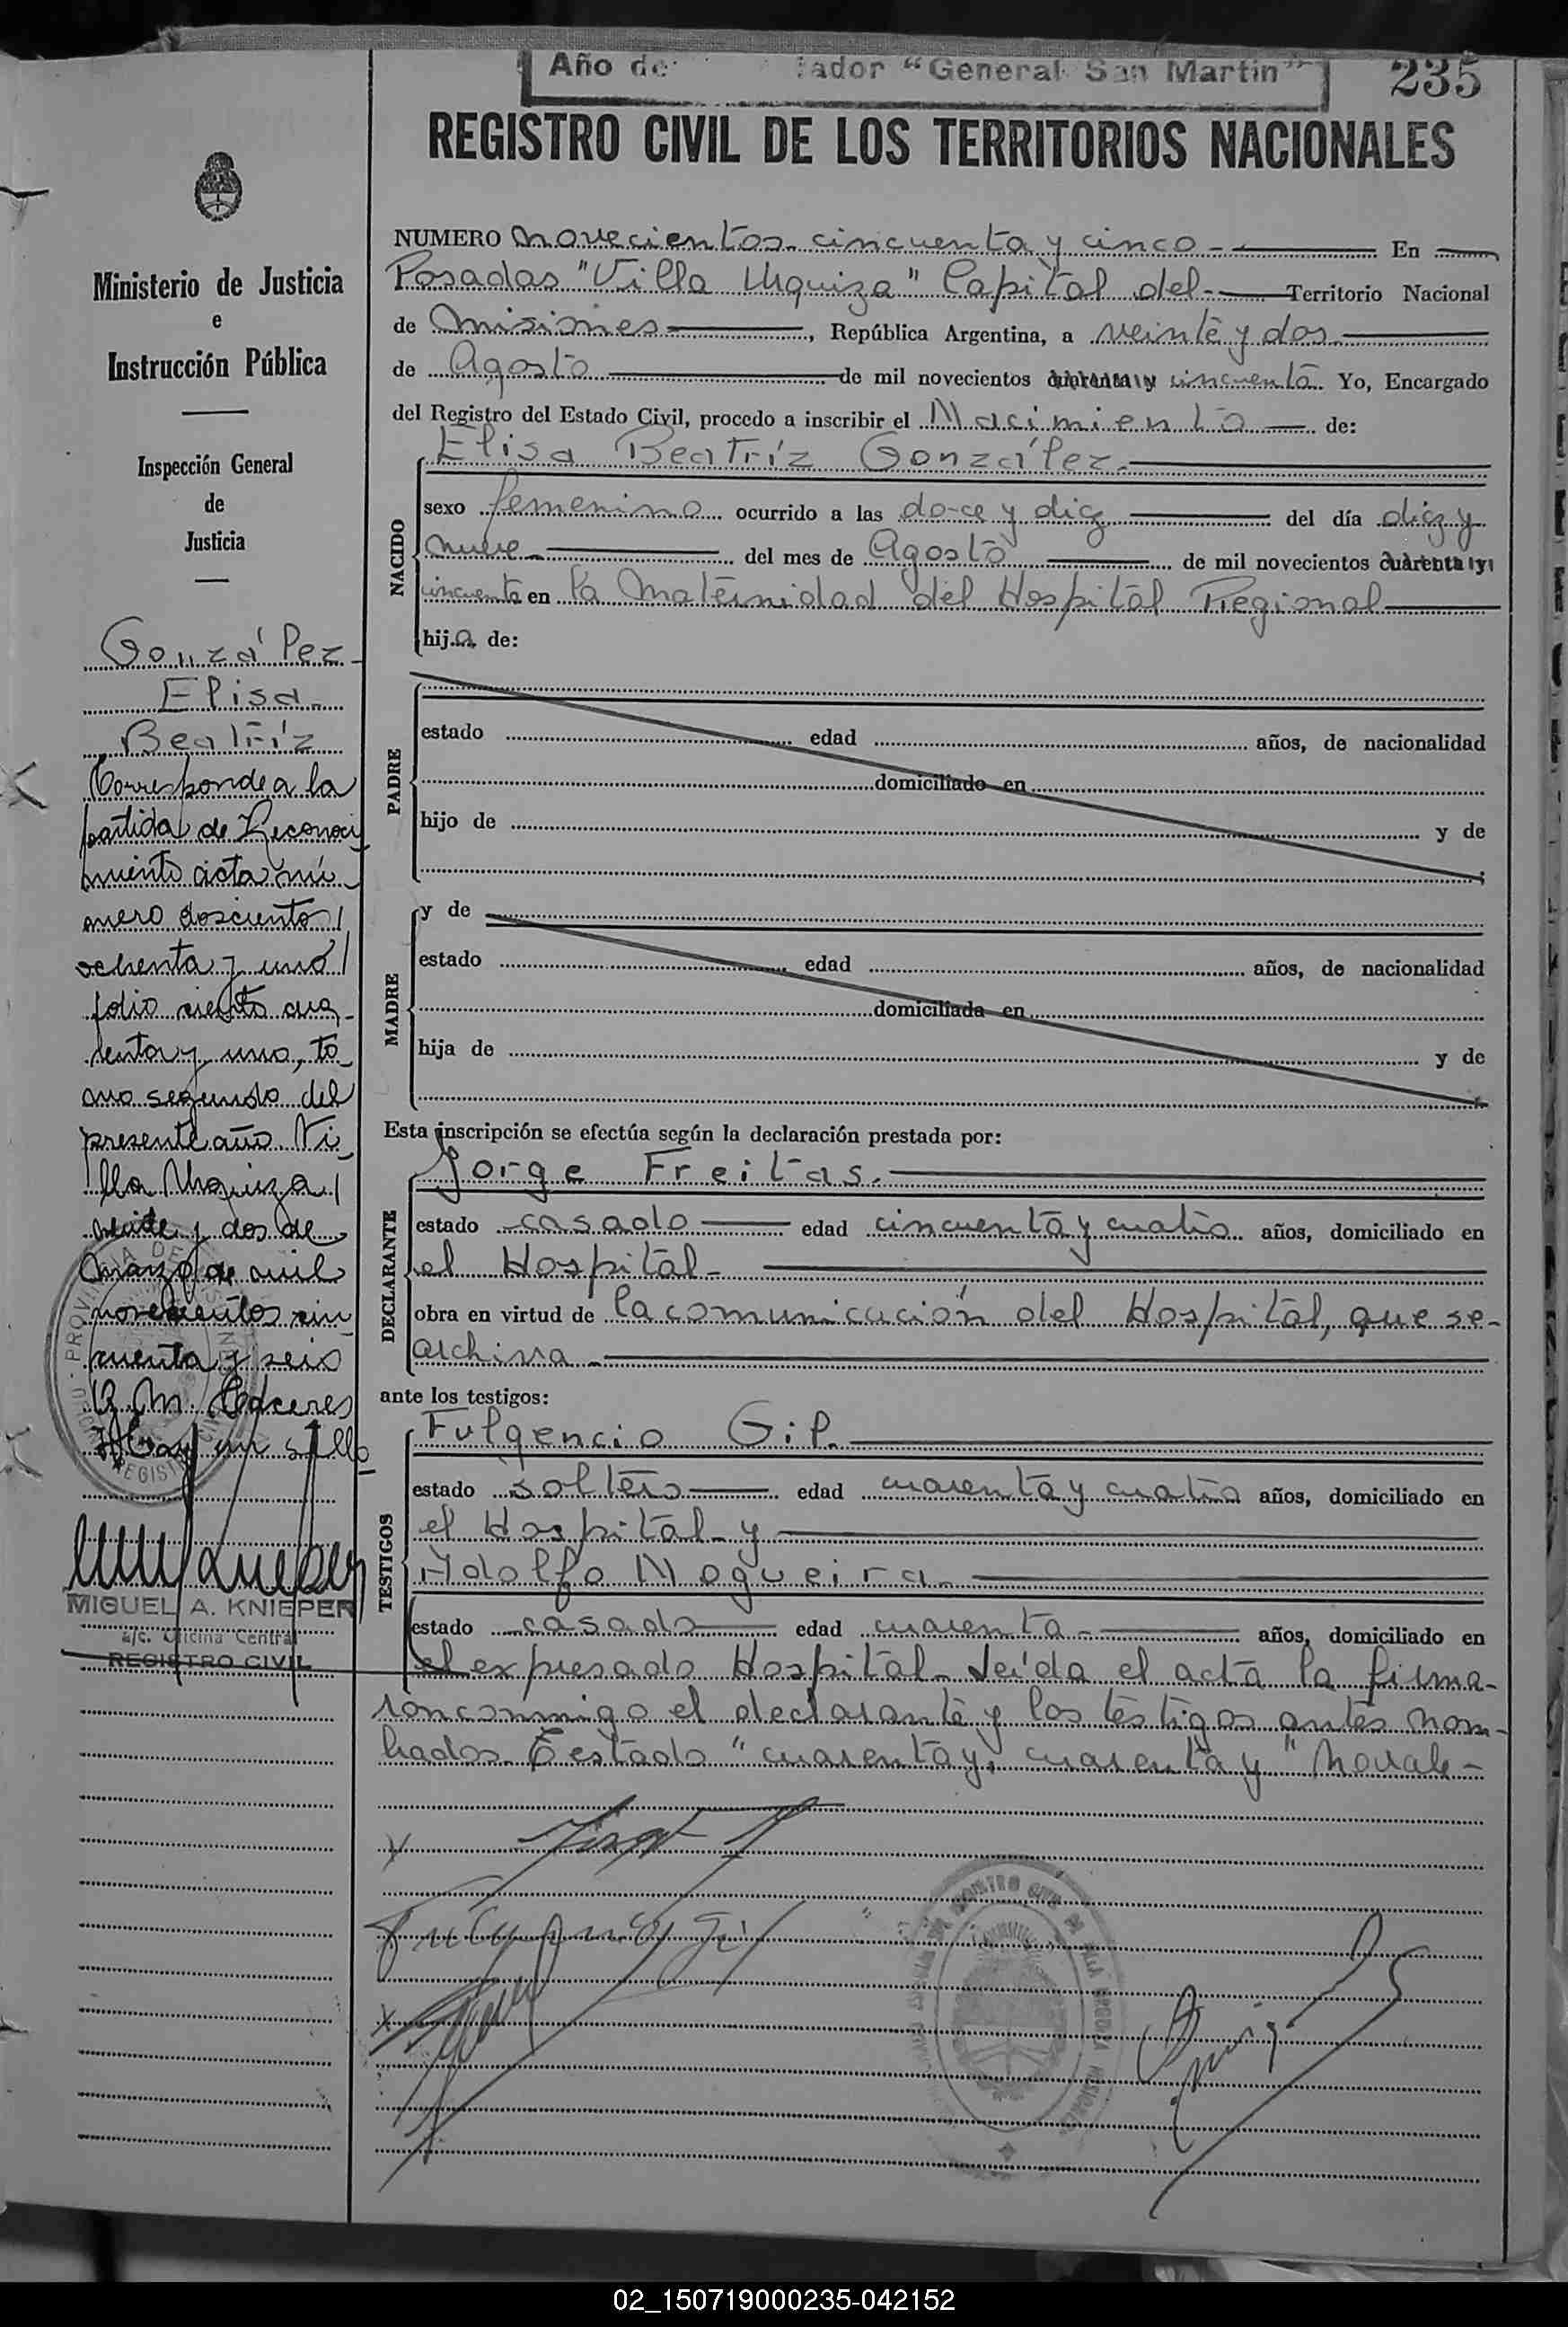 Año de ador “General San Martin”
235
REGISTRO CIVIL DE LOS TERRITORIOS NACIONALES
Ministerio de Justicia
e
Instrucción Pública
Inspección General
de
Justicia
González
Elisa
Beatríz
Corresponde a la
partida de Reconoci
miento acta nú
mero doscientos
ochenta y uno
folio ciento cua
renta y uno, to
mo segundo del
presente año Vi
lla Urquiza
veinte y dos de
marzo de mil
novecientos cin
cuenta y seis
M. Cáceres
Hay un sello
MIGUEL A. KNIEPER
a/c. Oficina Central
REGISTRO CIVIL
NUMERO novecientos cincuenta y cinco - En
Posadas "Villa Urquiza" Capital del - Territorio Nacional
de Misiones, República Argentina, a veinte y dos
de Agosto de mil novecientos cuarenta y cincuenta. Yo, Encargado
del Registro del Estado Civil, procedo a inscribir el Nacimiento de:
Elisa Beatríz González.
NACIDO
sexo femenino ocurrido a las doce y diez del día diez y
nueve del mes de Agosto de mil novecientos cuarenta y
cincuenta en la Maternidad del Hospital Regional
hija de:
PADRE
estado edad años, de nacionalidad
domiciliado en
hijo de y de
MADRE
y de
estado edad años, de nacionalidad
domiciliada en
hija de y de
Esta inscripción se efectúa según la declaración prestada por:
DECLARANTE
Jorge Freitas.
estado casado edad cincuenta y cuatro años, domiciliado en
el Hospital
obra en virtud de la comunicación del Hospital, que se
archiva
ante los testigos:
TESTIGOS
Fulgencio Gil.
estado soltero edad cuarenta y cuatro años, domiciliado en
el Hospital y
Adolfo Nogueira
estado casado edad cuarenta años, domiciliado en
el expresado Hospital. Leída el acta la firma-
ron conmigo el declarante y los testigos antes nom-
brados. Testado "cuarenta y, cuarenta y" No vale-
Fulgencio Gil
02_150719000235-042152